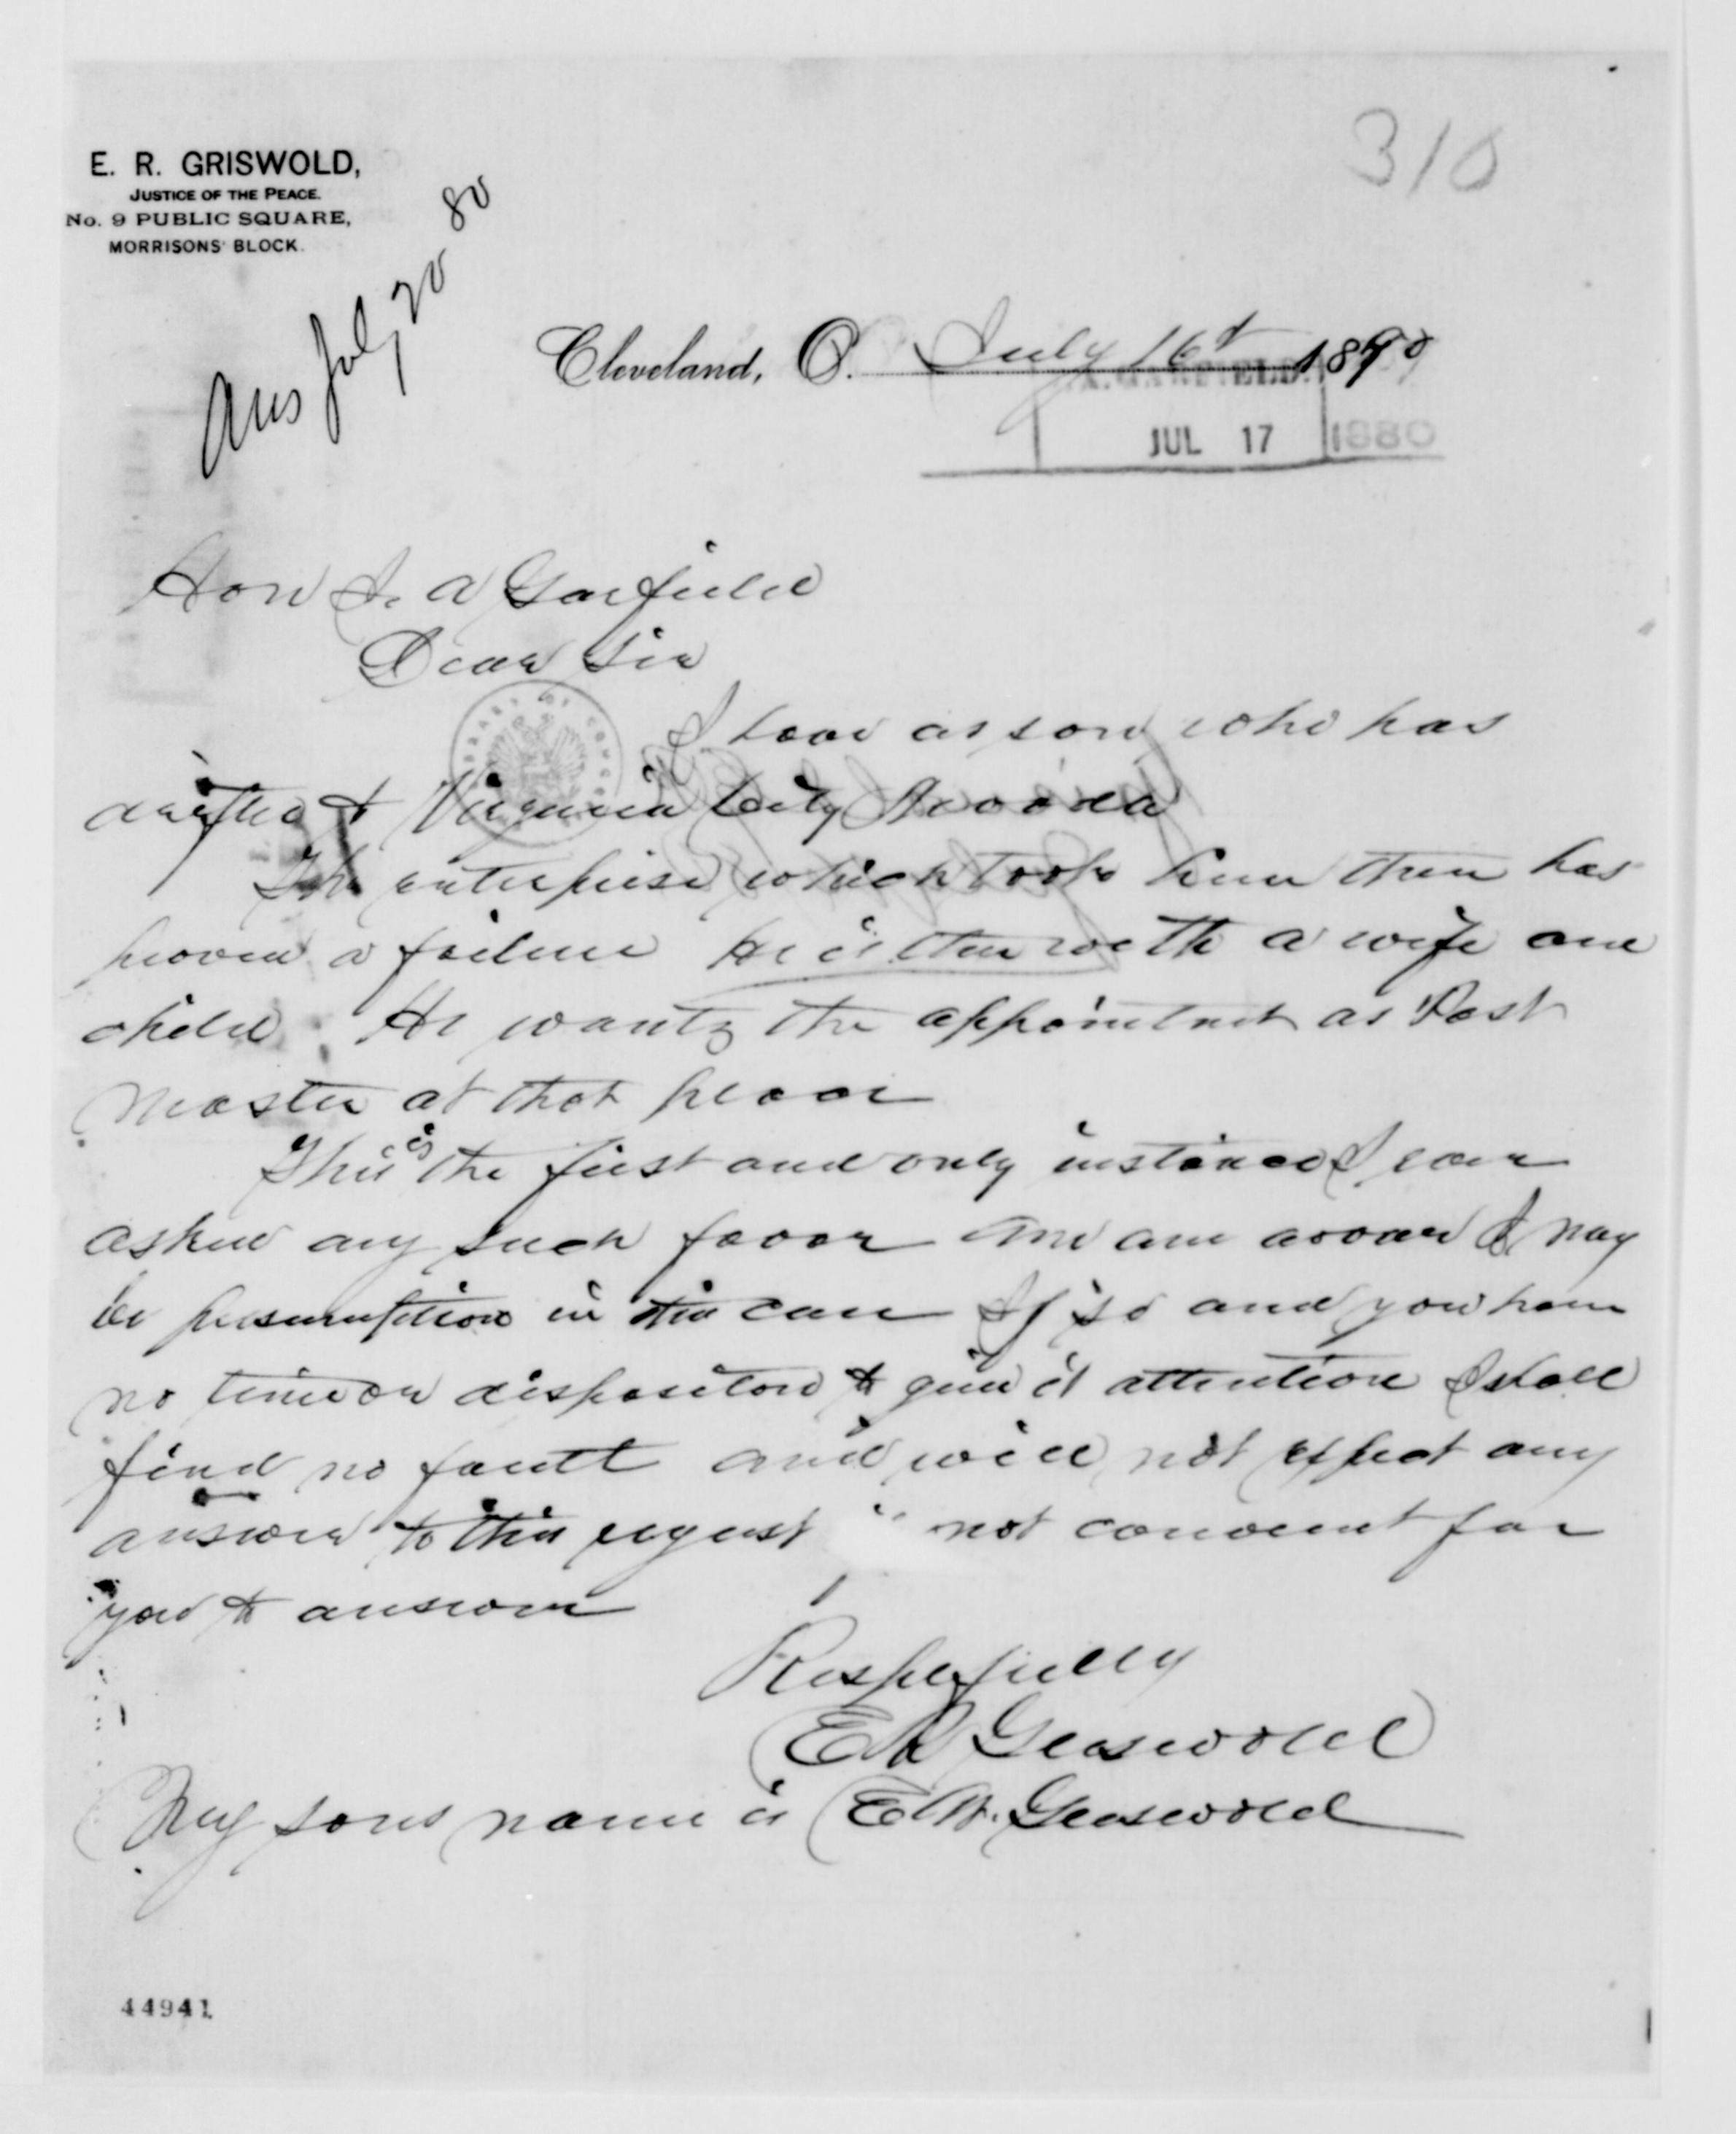 310
E. R. GRISWOLD,
JUSTICE OF THE PEACE.
No. 9 PUBLIC SQUARE,
MORRISONS' BLOCK.
Ans July 20 80
Cleveland, O. July 16t 1880
JUL 17 1880
Hon J. A Garfield
Dear Sir
I have a son who has
drifted to Virginia City Nevada
The enterprise which took him there has
proven a failure He is there with a wife and
child. He wants the appointment as Post
Master at that place
This is the first and only instance I ever
asked any such favor and am aware I may
be presumption in this case If so and you have
no time or disposition to give it attention I shall
find no fault and will not expect any
answer to this request not convenent for
you to answer
Respefully
E R Griswold
My sons name is E W. Griswold
LIBRARY OF CONGRESS
44941